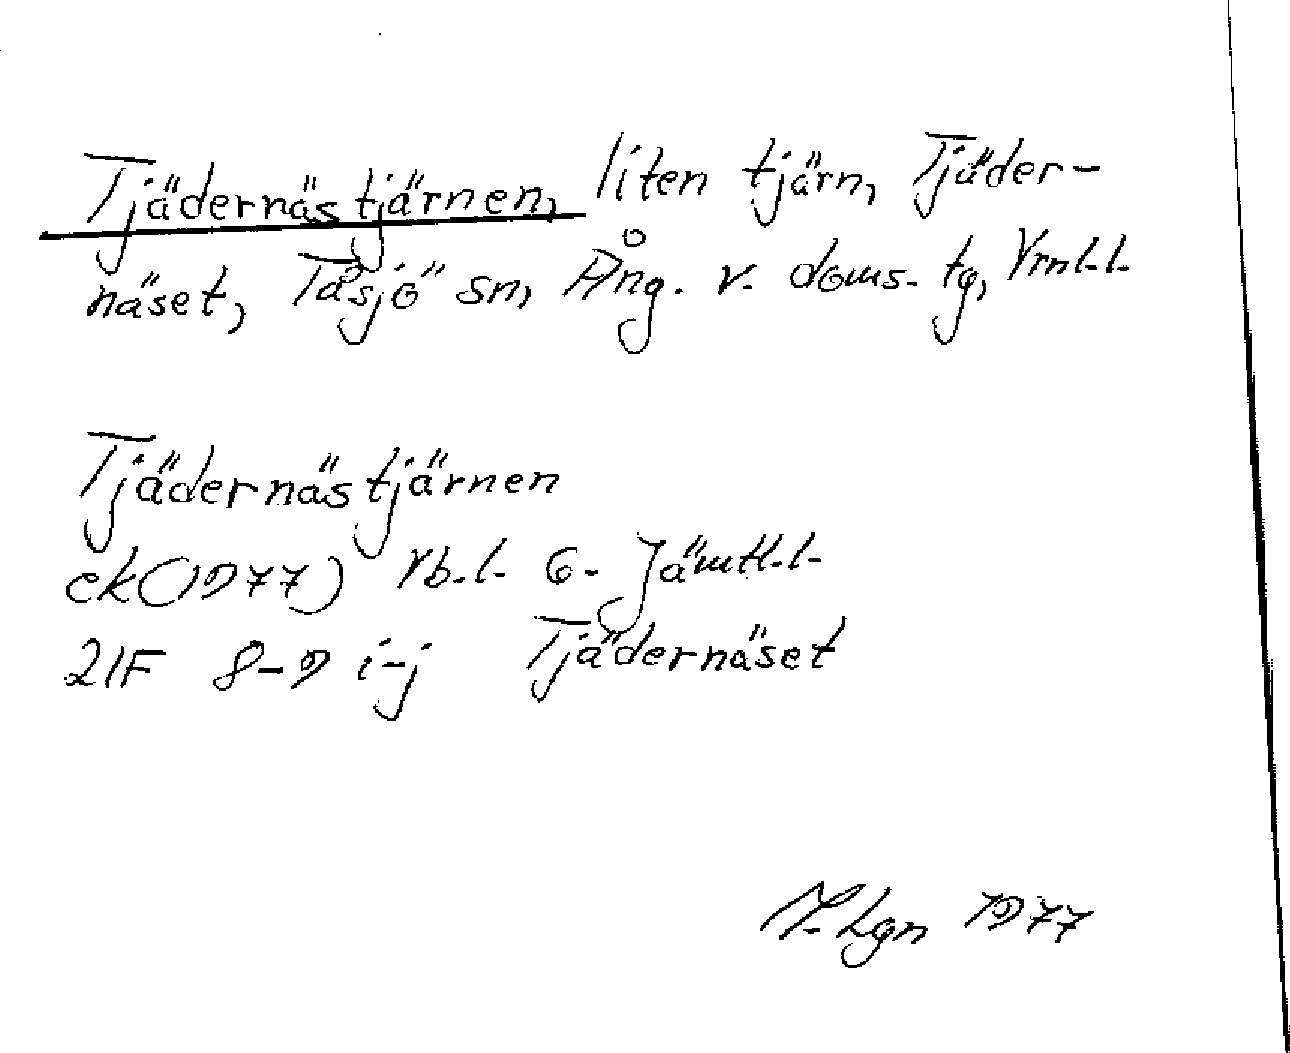 Tjädernästjärnen, liten tjärn, Tjäder-
näset, Tåsjö sn, Ång. v. doms. tg, Vrnl.l.
Tjädernästjärnen
ek(1977) Vb.l. 6. Jämtl.l.
21F 8-9 i-j Tjädernäset
Lgn 1977